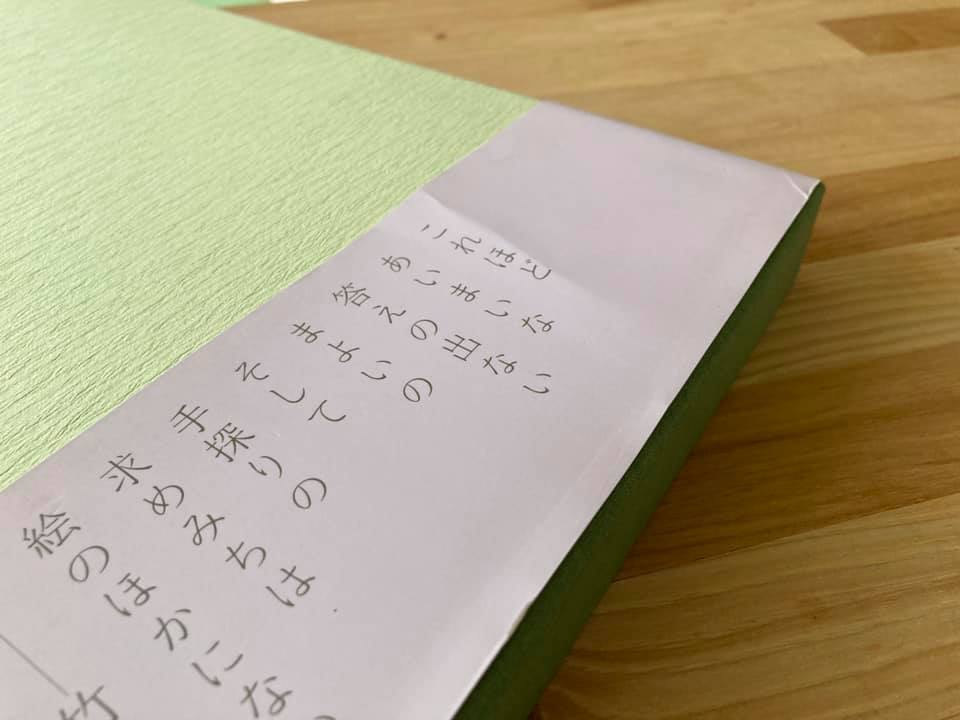 これほど
あいまいな
答えの出ない
まよいの
そして
手探りの
求めみちは
絵のほかにな
竹